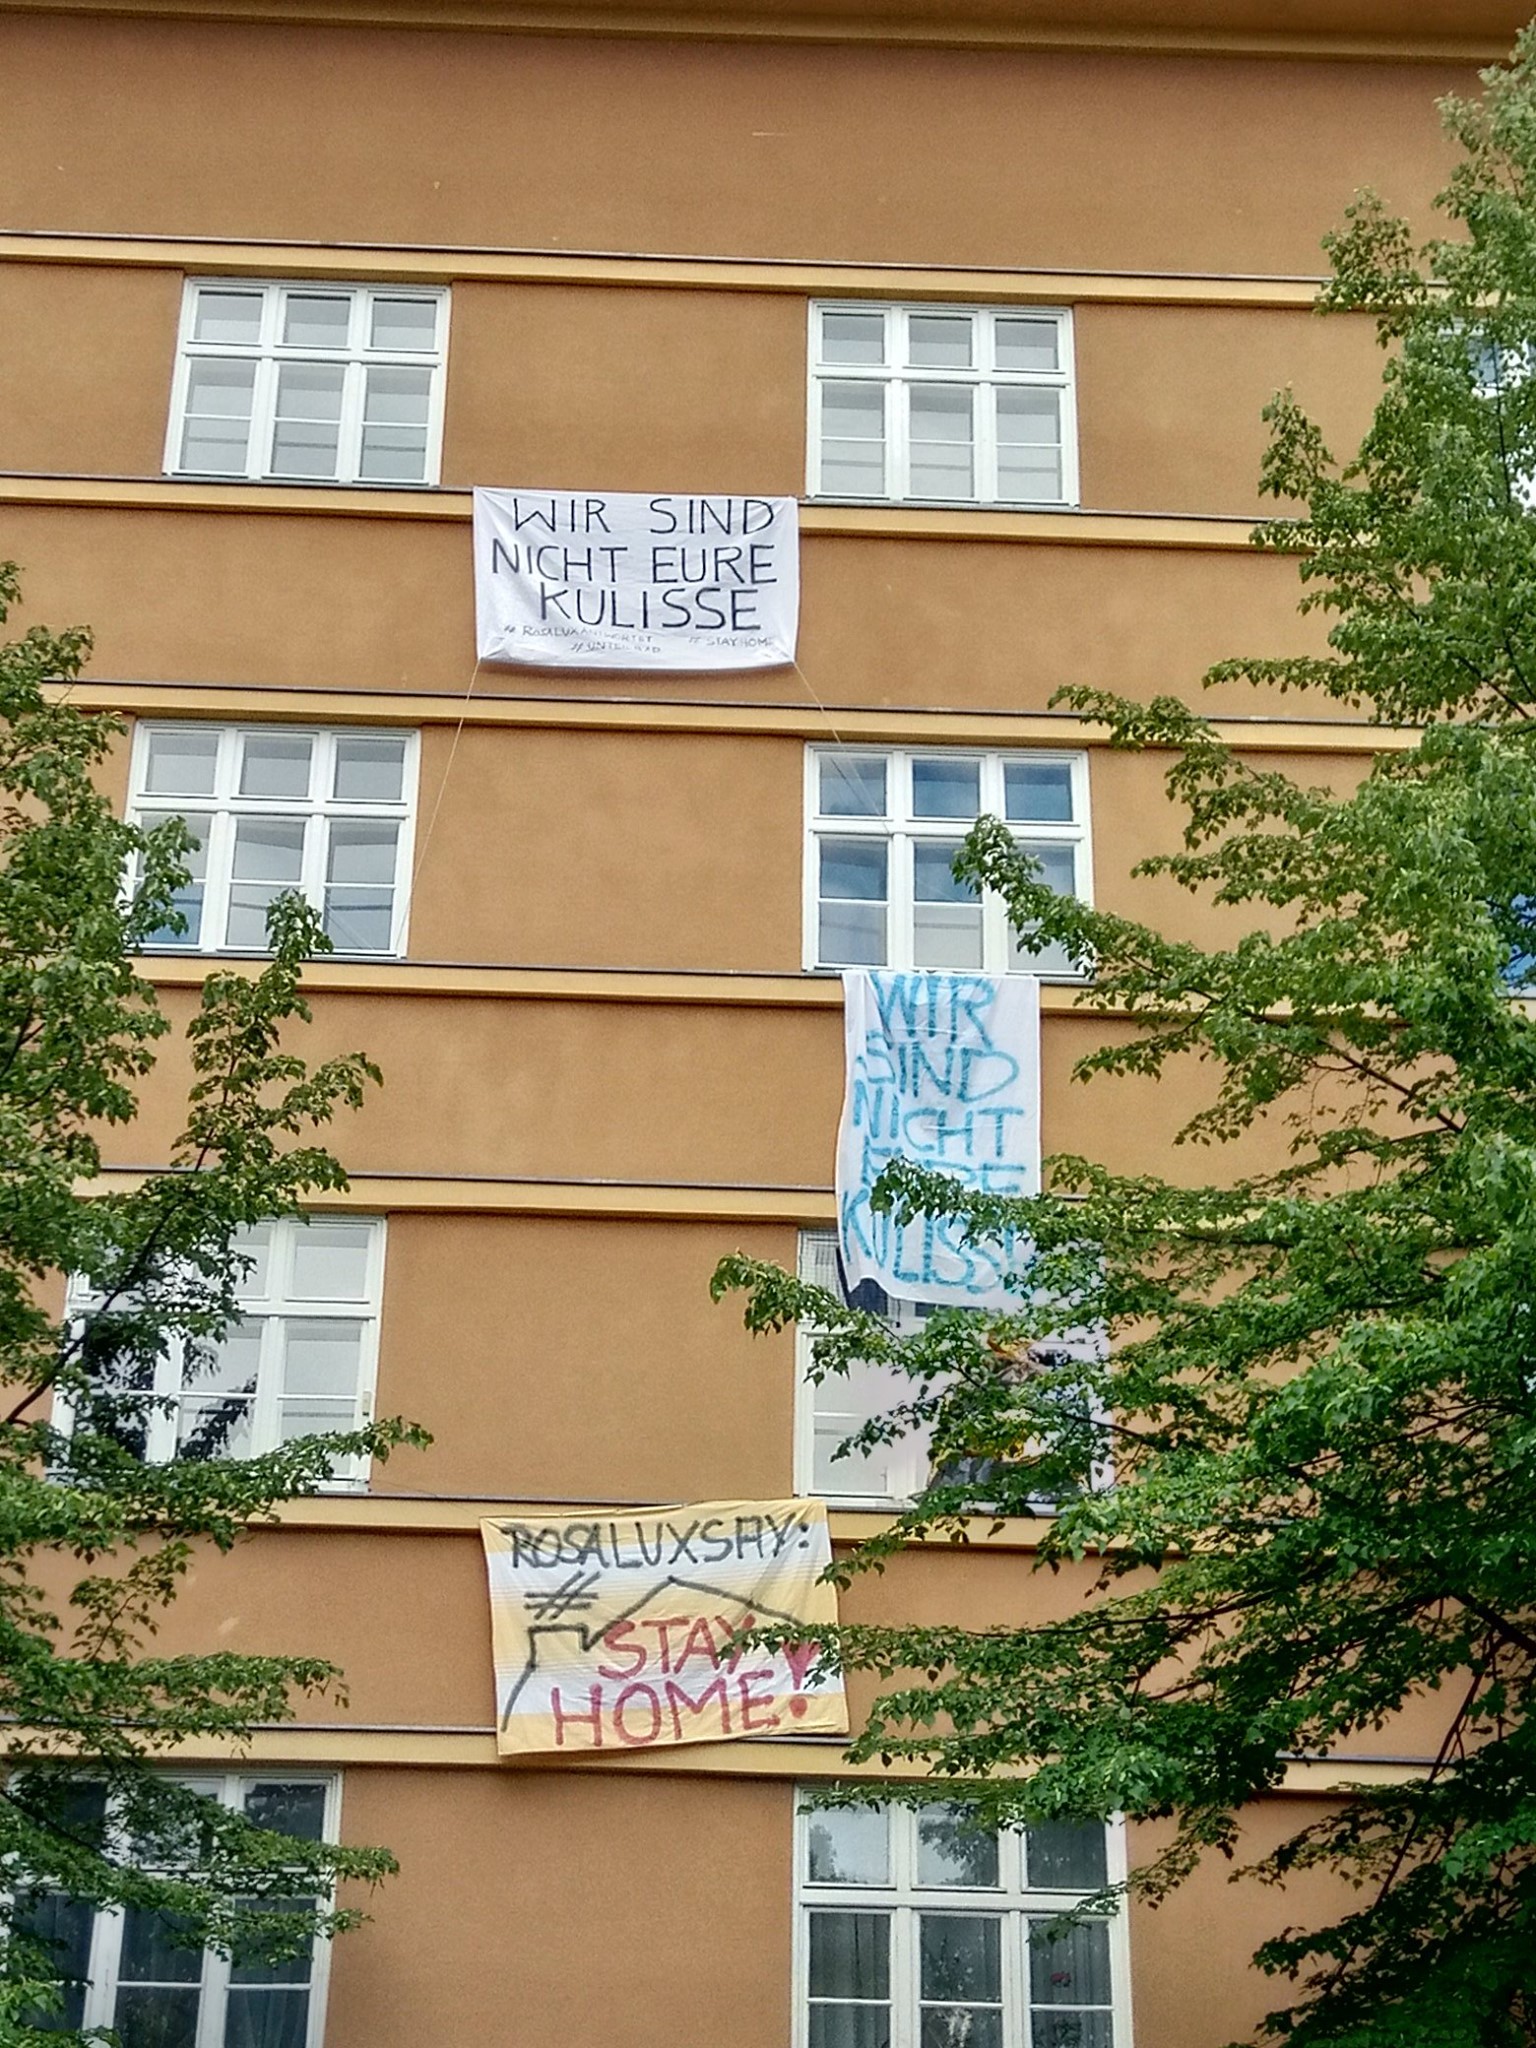 WIR SIND
NICHT EURE
KULISSE
# ROSALUXANTWORTET # STAYHOME
WIR
SIND
NICHT
EURE
KULISSE
ROSALUXSAY:
#
STAY
HOME!